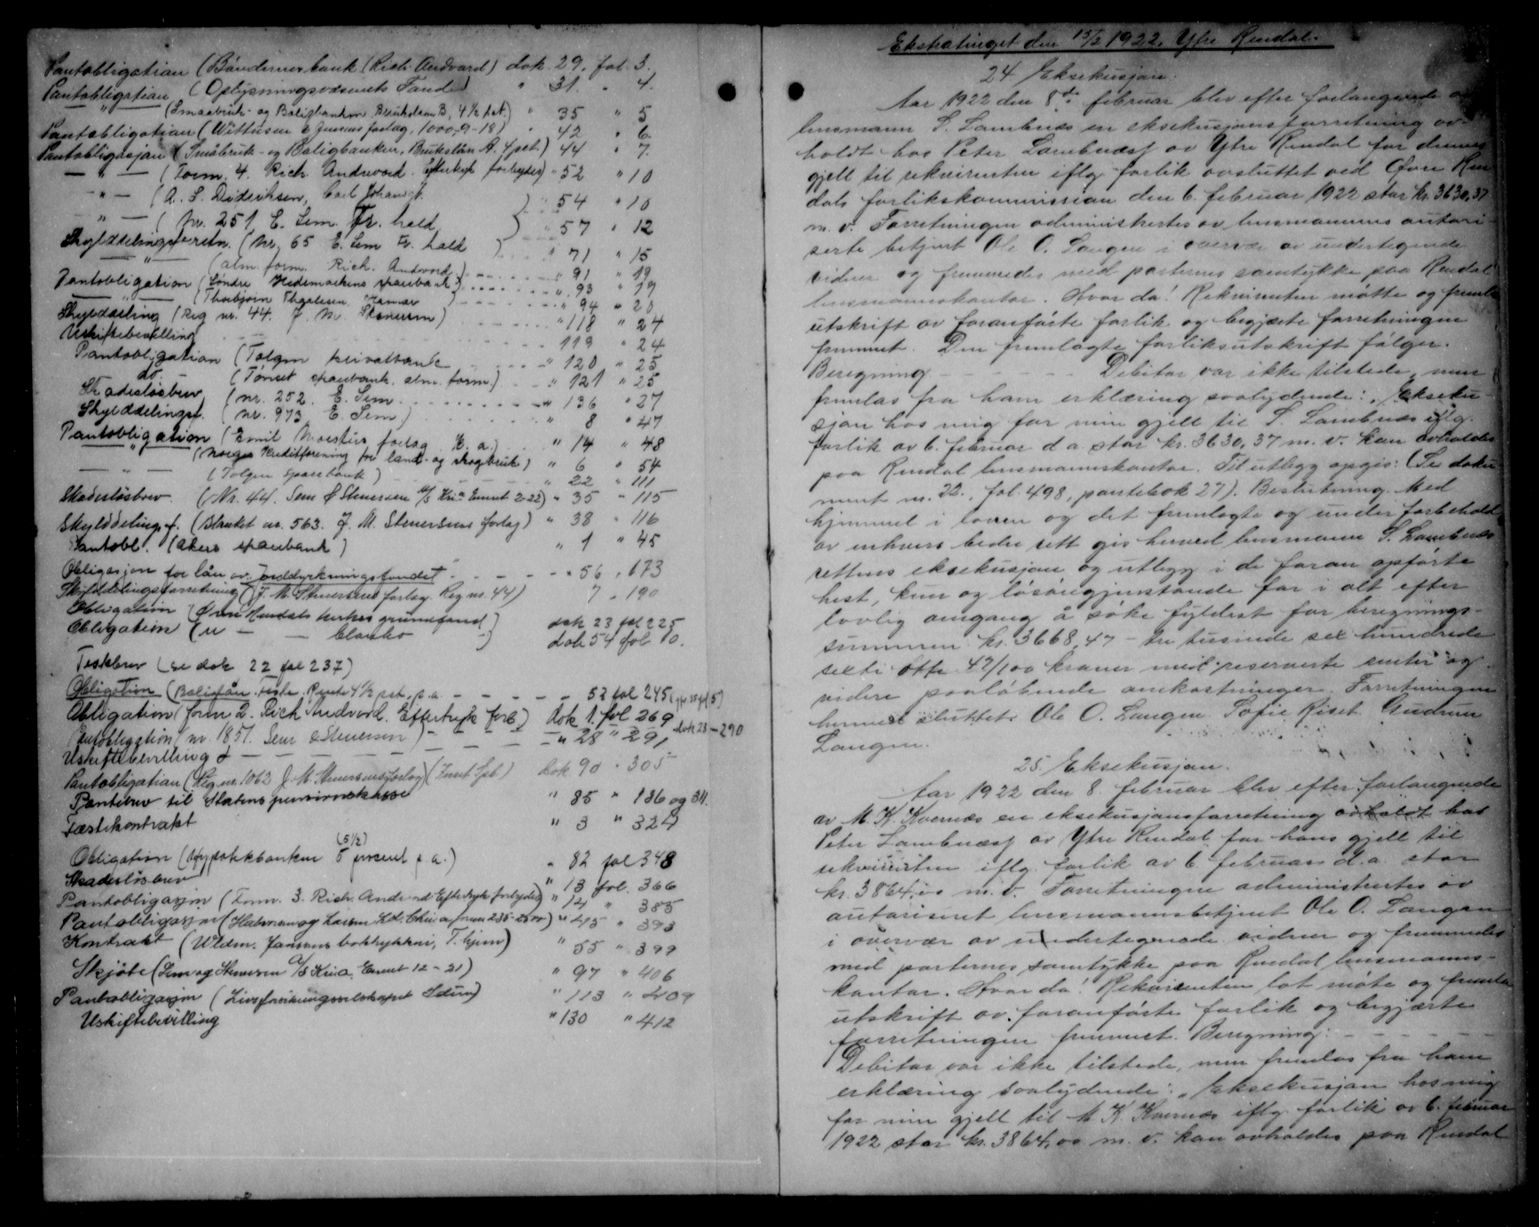 Pantobligation (Bøndernes bank (Rich. Andvord) dok. 29. fol. 3.
Pantobligation (Oplysningsvæsenets Fond) " 31. " 4.
" (Smaabruk- og Boligbanken Bruksloan B, 4½ pct.) " 35 " 5
Pantobligation (Wittusen & Jensens forlag, 1000-9-18) " 42 " 6
Pantobligasjon (Småbruk- og Boligbanken, Brukslån A. 4 pct.) 44 " 7.
— " — (Form. 4. Rich Andvord. Eftertryk forbydes) " 52 " 10
— " — (A. S. Diderichsen, Carl Johansgt. " 54 " 10
— " — (Nr. 251 E. Sem Fr. hald " 57 " 12
Skylddelingsforretn. (Nr. 65 E. Sem Fr. hald " 71 " 15
— " — (alm form. Rich. Andvord) " 91 " 19
Pantobligation (Søndre Hedemarkens sparebank) " 93 " 19
— " — (Thorbjørn Thorstensen, Hamar) " 94 " 20
Skylddeling (Reg nr. 44. J. M. Stenersen) " 118 " 24
Uskiftebevilling 119 " 24
Pantobligation (Tolgen privatbank " 120 " 25
do — (Tönset sparebank. alm. form.) " 121 " 25
Skadesløsbrev (nr. 252. E. Sem. " 136 " 27
Skylddelingsf. (nr. 973 E Sem) " 8 " 47
Pantobligation (Emil Moestue forlag K. a.) " 14 " 48
" (Norges Kreditforening for land- og skogbruk) " 6 " 54
— " — (Tolgen sparebank) " 22 " 111
Skadesløsbrev (Nr. 44. Sem & Stenersen A/S Kr.a Eneret 2-22) " 35 " 115
Skylddeling f. (Blanket nr. 563. J. M. Stenersens forlag) " 38 " 116
Pantobl. (Akers sparebank) " 1 " 45
Obligasjon for lån av Jorddyrkningsfondet " 56 " 173
Skylddelingsforretning (J. M. Stenersens forlag. Reg nr. 44) 7 " 190
Obligation (Øvre Rendals kirkes grundfond) dok 23 fol 225
Obligation (u — — blanko) dok 54 fol 10.
Festebrev (se dok 22 fol 237)
Obligation (Boliglån. Feste. Rente 4½ pct. p.a. — — — 53 fol 245
Obligation (form 2. Rich Andvord. Eftertryk forb) dok 1. fol 269
Pantobligation (nr 1851. Sem & Stenersen) — " 28 " 291 dok 23 — 290
Uskiftebevilling
Pantobligation (Reg nr. 1063 J. M. Stenersens forlag) dok 90 " 305
Pantebrev til Statens pensionskasse " 85 " 136 og 311.
Fæstekontrakt " 3 " 324
Obligation (Hypotekbanken (5½) 5 procent p.a.) " 82 fol 348
Skadesløsbrev " 13 fol. 366
Pantobligasjon (Form. 3. Rich. Andvord Eftertryk forbydes) " 14 " 385
Pantobligasjon (Halvorsen og Larsen " 45 " 393
Kontrakt (Wldm. Jansens boktrykkeri, T.hjem) " 55 " 399
Skjøte (Sem og Stenersen A/S Kr.a. Eneret 12-21) " 97 " 406
Pantobligasjon (Livsforsikringsselskapet Idun) " 113 " 409
Uskiftebevilling " 130 " 412
Ekstratinget den 15/2 1922. Ytre Rendal.
24 Eksekusjon.
Aar 1922 den 8de februar blev efter forlangende av
lensmann S. Lombnæs en eksekusjonsforretning av-
holdt hos Peter Lombnæs av Ytre Rendal for dennes
gjeld til rekvirenten iflg. forlik avsluttet ved Øvre Ren
dals forlikskommission den 6. februar 1922 stor kr. 3630,37
m. v. Forretningen administrertes av lensmannens autori
serte betjent Ole O. Langen i overvær av undertegnede
vidner og fremmedes med parternes samtykke paa Rendal
lensmannskontor. Hvor da! Rekvirenten møtte og fremla
utskrift av foranførte forlik og begjærte forretningen
fremmet. Den fremlagte forliksutskrift følger.
Beregning — — — — — Debitor var ikke tilstede, men
fremlas fra ham erklæring saalydende: "Ekseku-
sjon hos mig for min gjeld til S. Lombnæs iflg.
forlik av 6. februar d. a. stor kr. 3630,37 m. v. kan avholdes
paa Rendal lensmannskontor. Til utlegg opgis: (Se doku-
ment nr. 22. fol. 498, pantebok 27). Beslutning. Med
hjemmel i loven og det fremlagte og under forbehold
av enhvers bedre rett gis herved lensmann S. Lombnæs
rettens eksekusjon og utlegg i de foran opførte
hest, kuer og løsøregjenstande for i alt efter
lovlig omgang å søke fyldest for beregnings-
summen kr. 3668,47 — tre tusinde sex hundrede
seksti otte 47/100 kroner med reserverte renter og
videre paaløbende omkostninger. Forretningen
hermed sluttet. Ole O. Langen Sofie Riset. Gudrun
Langen.
25 Eksekusjon.
Aar 1922 den 8. februar blev efter forlangende
av M. K. Kvernæs en eksekusjonsforretning avholdt hos
Peter Lombnæs av Ytre Rendal for hans gjeld til
rekvirenten iflg. forlik av 6. februar d. a. stor
kr. 3864,00 m. v. Forretningen administrertes av
autoriseret lensmannsbetjent Ole O. Langen
i overvær av undertegnede vidner og fremmedes
med parternes samtykke paa Rendal lensmanns-
kontor. Hvor da! Rekvirenten lot møte og fremla
utskrift av foranførte forlik og begjærte
forretningen fremmet. Beregning: — — — — —
Debitor var ikke tilstede, men fremlas fra ham
erklæring saalydende: "Eksekusjon hos mig
for min gjeld til M K Kvernæs iflg. forlik av 6. februar
1922 stor kr. 3864,00 m. v. kan avholdes paa Rendal